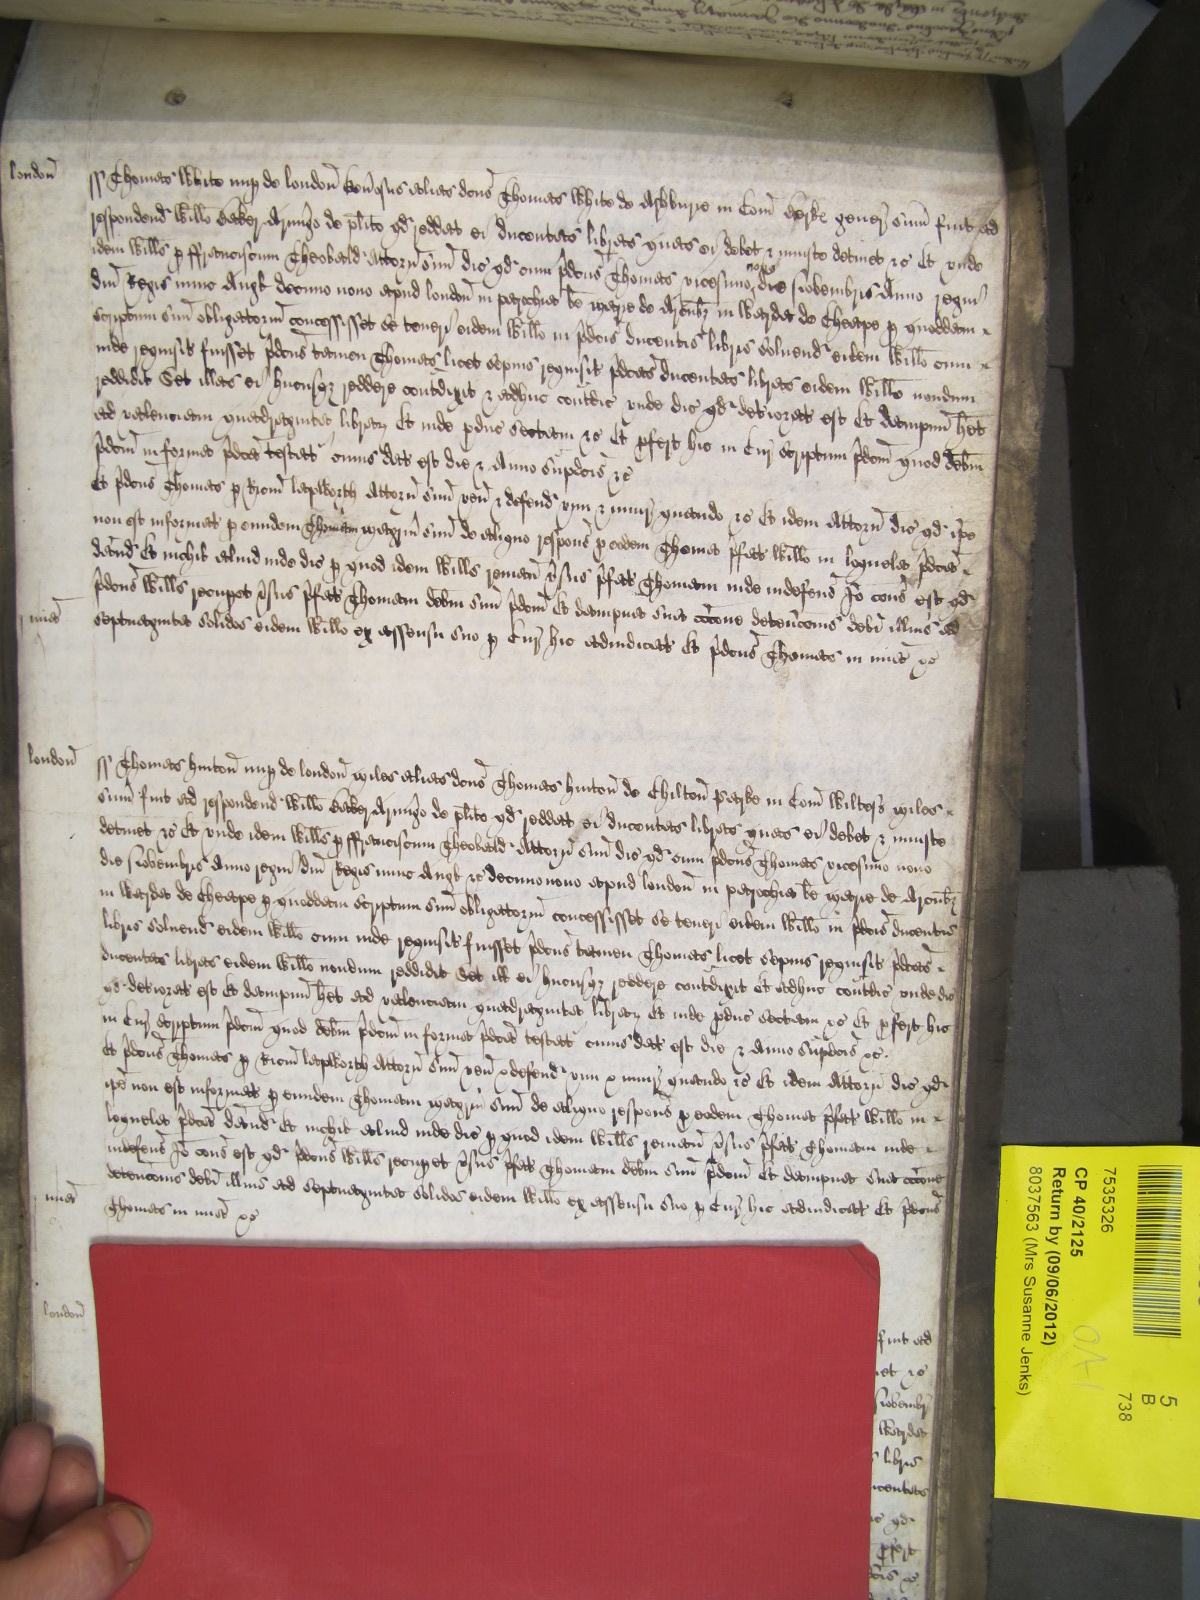 london̄
ss Thomas White nup̱ de london̄ gen̄osus alias dc̄us Thomas White de Asshburie in Com̄ Berk̄ gener̄ sum̄ fuit ad
respondend̄ Will̄o Baker Armig̃o de pl̄ito qd̄ reddat ei ducentas libras quas ei debet & iniuste detinet &c Et unde
idem Will̄s p̱ ffranciscum Theobald Attorn̄ suu̅ dic̄ qd̄ cum p̄dc̄us Thomas vicesimo nono die Novembris Anno regni
dn̄i Regis nunc Angl̄ decimo nono apud london̄ in parochia b̄e Marie de Arcub̄ȝ in Warda de Cheape p̱ quoddam
scriptum suu̅ obligatoriu̅ concessisset se teneri eidem Will̄o in p̄dc̄is ducentis libris solvend̄ eidem Will̄o cum
inde requisit̄ fuisset p̄dc̄us tamen Thomas licet sepius requisit̄ p̄dc̄as ducentas libras eidem Will̄o nondum
reddidit Set illas ei hucusqȝ reddere contradixit & adhuc contradic̄ unde dic̄ qd̄ deterioratus est Et dampnu̅ h̄et
ad valenciam quadraginta libraȝ Et inde p̱duc̄ sectam &c Et p̱fert hic in Cur̄ scriptum p̄dc̄m quod debm̄
p̄dc̄m in forma p̄dc̄a testat̄ cuius dat̄ est die & Anno sup̄dc̄is &c
Et p̄dc̄us Thomas p̱ Ric̄m lapworth Attorn̄ suu̅ ven̄ & defend̄ vim & iniur̄ quando &c Et idem Attorn̄ dic̄ qd̄ ip̄e
non est informat̄ p̱ eundem Thomam mag̃rm̄ suu̅ de aliquo respons̄ p̱ eodem Thoma p̄fat̄ Will̄o in loquela p̄dc̄a
dand̄ Et nichil aliud inde dic̄ p̱ quod idem Will̄s remanet v̄sus p̄fat̄ Thomam inde indefens̄ Jo cons̄ est qd̄
p̄dc̄us Will̄s recup̱et v̄sus p̄fat̄ Thomam debm̄ suu̅ p̄dc̄m Et dampna sua occ̄one detenc̄onis debi illius ad
mia̅
septuaginta solidos eidem Will̄o ex assensu suo p̱ Cur̄ hic adiudicat̄ Et p̄dc̄us Thomas in mia̅ &c
london̄
ss Thomas hinton̄ nup̱ de london̄ Miles alias dc̄us Thomas hinton̄ de Chilton̄ parke in Com̄ Wiltes̄ Miles
sum̄ fuit ad respondend̄ Will̄o Baker Armig̃o de pl̄ito qd̄ reddat ei ducentas libras quas ei debet & iniuste
detinet &c Et unde idem Will̄s p̱ ffranciscum Theobald Attorn̄ suu̅ dic̄ qd̄ cum p̄dc̄us Thomas vicesimo nono
die Novembris Anno regni dn̄i Regis nunc Angl̄ &c decimo nono apud london̄ in parochia b̄e Marie de Arcub̄ȝ
in Warda de Cheape p̱ quoddam scriptum suu̅ obligatoriu̅ concessisset se teneri eidem Will̄o in p̄dc̄is ducentis
libris solvend̄ eidem Will̄o cum inde requisit̄ fuisset p̄dc̄us tamen Thomas licet sepius requisit̄ p̄dc̄as
ducentas libras eidem Will̄o nondum reddidit Set ill̄ ei hucusqȝ reddere contradixit Et adhuc contradic̄ unde dic̄
qd̄ deterioratus est Et dampnu̅ h̄et ad valenciam quadraginta libraȝ Et inde p̱duc̄ sectam &c Et p̱fert hic
in Cur̄ scriptum p̄dc̄m quod debm̄ p̄dc̄m in forma p̄dc̄a testat̄ cuius dat̄ est die & Anno sup̄dc̄is &c
Et p̄dc̄us Thomas p̱ Ric̄m lapworth Attorn̄ suu̅ ven̄ & defend̄ vim & iniur̄ quando &c Et idem Attorn̄ dic̄ qd̄
ip̄e non est informat̄ p̱ eundem Thomam mag̃rm̄ suu̅ de aliquo respons̄ p̱ eodem Thoma p̄fat̄ Will̄o in
loquela p̄dc̄a dand̄ Et nichil aliud inde dic̄ p̱ quod idem Will̄s remanet v̄sus p̄fat̄ Thomam inde
indefens̄ Jo cons̄ est qd̄ p̄dc̄us Will̄s recup̱et v̄sus p̄fat̄ Thomam debm̄ suu̅ p̄dc̄m Et dampna sua occ̄one
mia̅
detenc̄onis debi illius ad septuaginta solidos eidem Will̄o ex assensu suo p̱ Cur̄ hic adiudicat̄ Et p̄dc̄us
Thomas in mia̅ &c
london̄
fuit ad
&c
Novembr̄
Warda
libris
ducentas
qd̄
p̱fert
&c
7535326
CP 40/2125
Return by (09/06/2012)
8037563 (Mrs Susanne Jenks)
5
B
738